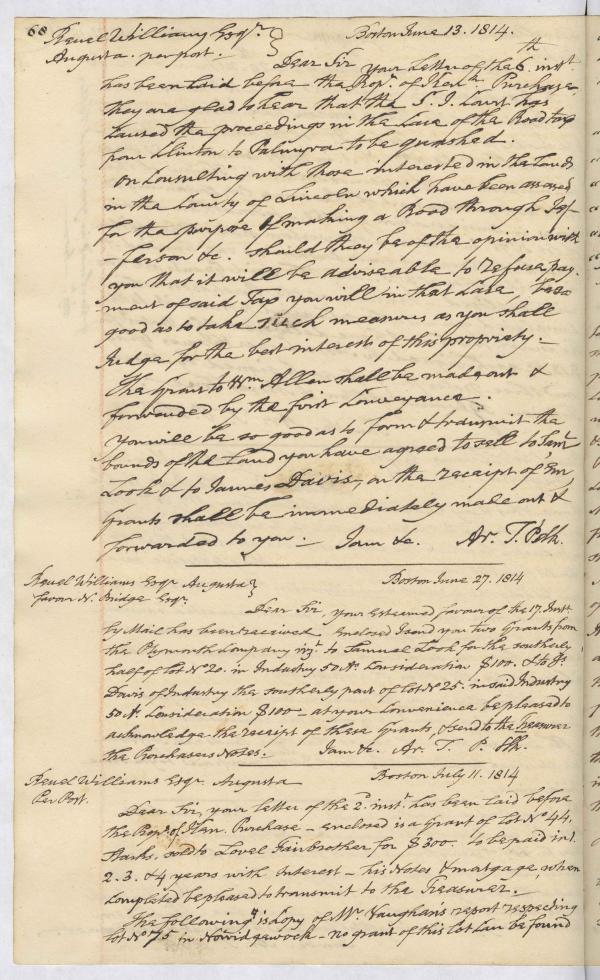 68
Reuel Williams Esqr. Boston June 13. 1814.
Augusta. per post.
Dear Sir your Letter of the 6th inst
has been laid before the Propr. of Kenn. Purchase
they are glad to hear that the S. J. Court has
caused the proceedings in the Case of the Road tax
from Clinton to Palmyra to be quashed.
On Consulting with those interested in the Lands
in the County of Lincoln which have been assessed
for the purpose of making a Road through Jef-
-ferson &c. should they be of the opinion with
you that it will be adviseable to refuse pay-
ment of said Tax you will in that Case, be so
good as to take such measures as you shall
Judge for the best interests of this propriety. -
The Grant to Wm. Allen shall be made out &
forwarded by the first Conveyance.
you will be so good as to form & transmit the
bounds of the Land you have agreed to sell to Saml
Look & to James Davis, on the receipt of Em,
Grants shall be immediately made out &
forwarded to you. - I am &c. Ar. T. P. Clk.
Reuel Williams Esqr Augusta Boston June 27. 1814
favour N. Bridge Esqr.
Dear Sir, your Esteemed favour of the 17. Inst.
by Mail has been received, Enclosed I send you two Grants from
the Plymouth Company viz. to Samuel Look for the southerly
half of Lot No 20. in Industry 50 As. Consideration $100. & to Js.
Davis of Industry the southerly part of Lot No 25. in said Industry
50 A. Consideration $100 - at your Convenience be pleased to
acknowledge the receipt of these Grants, & send to the Treasurer
the Purchasers Notes. I am &c. Ar. T. P. Clk.
Reuel Williams Esqr. Augusta Boston July 11. 1814
Per Post.
Dear Sir, your letter of the 2d. inst. has been laid before
the Propr. of Ken. Purchase - enclosed is a Grant of Lot No 44.
Starks, sold to Lovel Fairbrother for $300. to be paid in 1.
2. 3. & 4 years with Interest - his Notes & mortgage when
Completed be pleased to transmit to the Treasurer. -
The following is Copy of Mr. Vaughan's report respecting
Lot No 75 in Norridgewock - no grant of this Lot Can be found